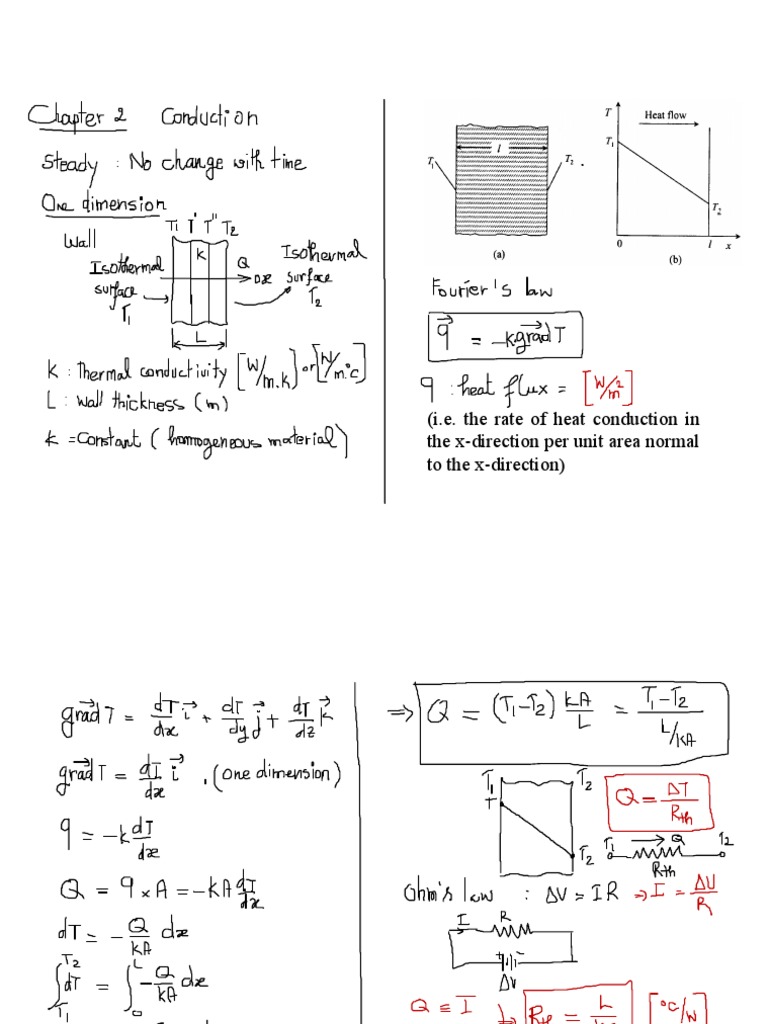 Chapter 2 Conduction
Steady : No change with time
One dimension
Wall
T1 T' T'' T2
Isothermal surface T1
K
Q
dx
Isothermal surface T2
L
K : Thermal conductivity [W/m.k] or [W/m.°c]
L : wall thickness (m)
K = Constant ( homogeneous material )
l
T1
T2
(a)
T
Heat flow
T1
T2
0 l x
(b)
Fourier's law
q⃗ = -k.grad⃗ T
q : heat flux = [W/m²]
(i.e. the rate of heat conduction in
the x-direction per unit area normal
to the x-direction)
grad⃗ T = dT/dx i⃗ + dT/dy j⃗ + dT/dz k⃗
grad⃗ T = dT/dx i⃗ . (one dimension)
q = -k dT/dx
Q = q x A = -kA dT/dx
dT = - Q/kA dx
∫T1^T2 dT = ∫0^L - Q/kA dx
⇒ Q = (T1-T2) kA/L = T1-T2 / L/kA
T1 T2
T
T2
Q = ΔT/Rth
T1 Q T2
Rth
Ohm's law : ΔV = IR ⇒ I = ΔU/R
I R
+ -
ΔV
Q ≡ I
Rth = L [°C/W]